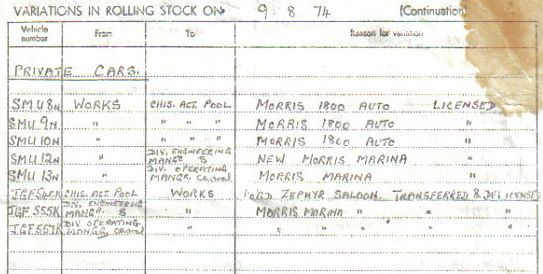 VARIATIONS IN ROLLING STOCK ON 9 8 74 (Continuation)
Vehicle number From To Reason for variation
PRIVATE CARS.
SMU 8N WORKS CHIS. ACT. POOL MORRIS 1800 AUTO LICENSED
SMU 9N " " " " MORRIS 1800 AUTO "
SMU 10N " " " " MORRIS 1800 AUTO "
SMU 12N " DIV. ENGINEERING MANGR S NEW MORRIS MARINA "
SMU 13N " DIV. OPERATING MANGR. Central MORRIS MARINA "
CHIS. ACT. POOL WORKS FORD ZEPHYR SALOON. TRANSFERRED & DELICENSED
JGF 555K DIV. ENGINEERING MANGR S " MORRIS MARINA " " "
JGF 557K DIV OPERATING MANGR. Central " " " " "